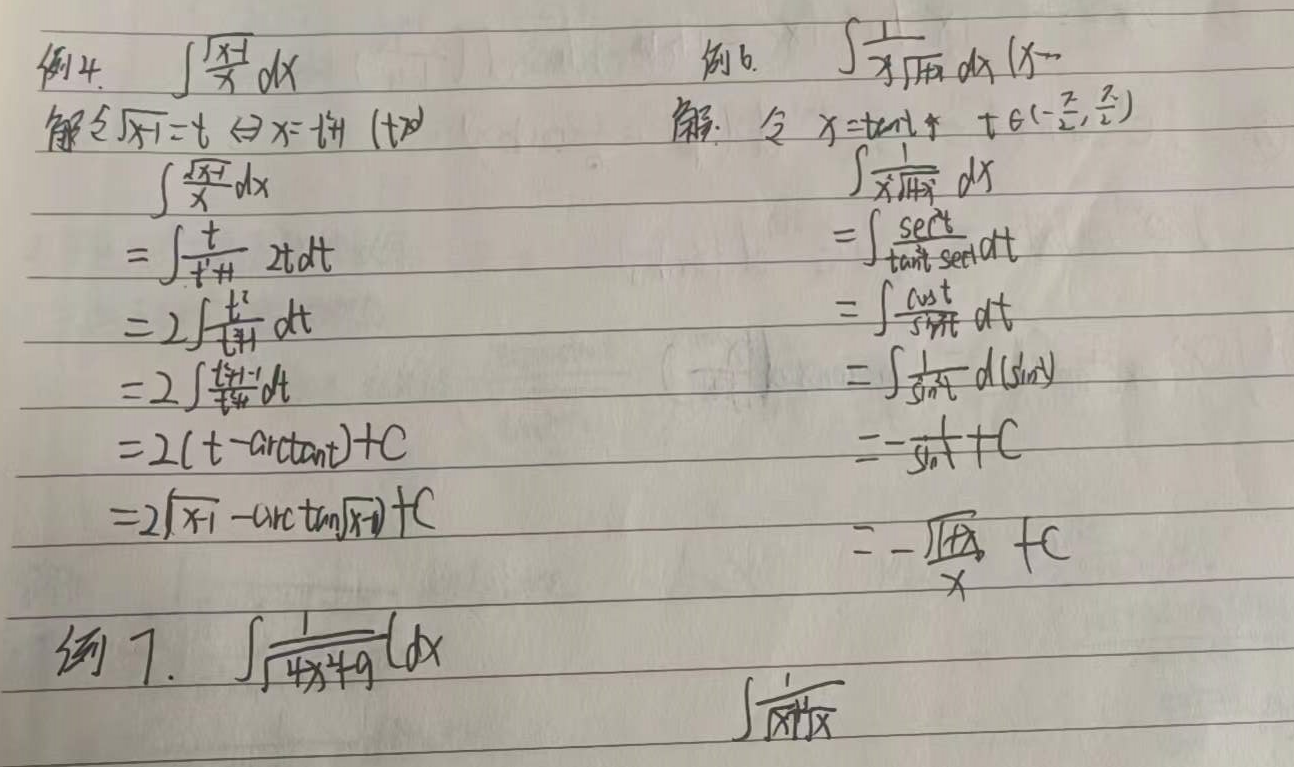 例4. ∫ √(x-1)/x dx
解 令√(x-1) = t ⇔ x = t²+1 (t>0)
∫ √(x-1)/x dx
= ∫ t/(t²+1) 2t dt
= 2∫ t²/(t²+1) dt
= 2∫ (t²+1-1)/(t²+1) dt
= 2(t - arctan t) + C
= 2(√(x-1) - arctan√(x-1)) + C
例6. ∫ 1/(x²√(1+x²)) dx
解. 令 x = tan t t∈(-π/2, π/2)
∫ 1/(x²√(1+x²)) dx
= ∫ sec²t/(tan²t sec t) dt
= ∫ cos t/sin²t dt
= ∫ 1/sin²t d(sin t)
= -1/sin t + C
= -√(1+x²)/x + C
例7. ∫ 1/√(4x²+9) dx